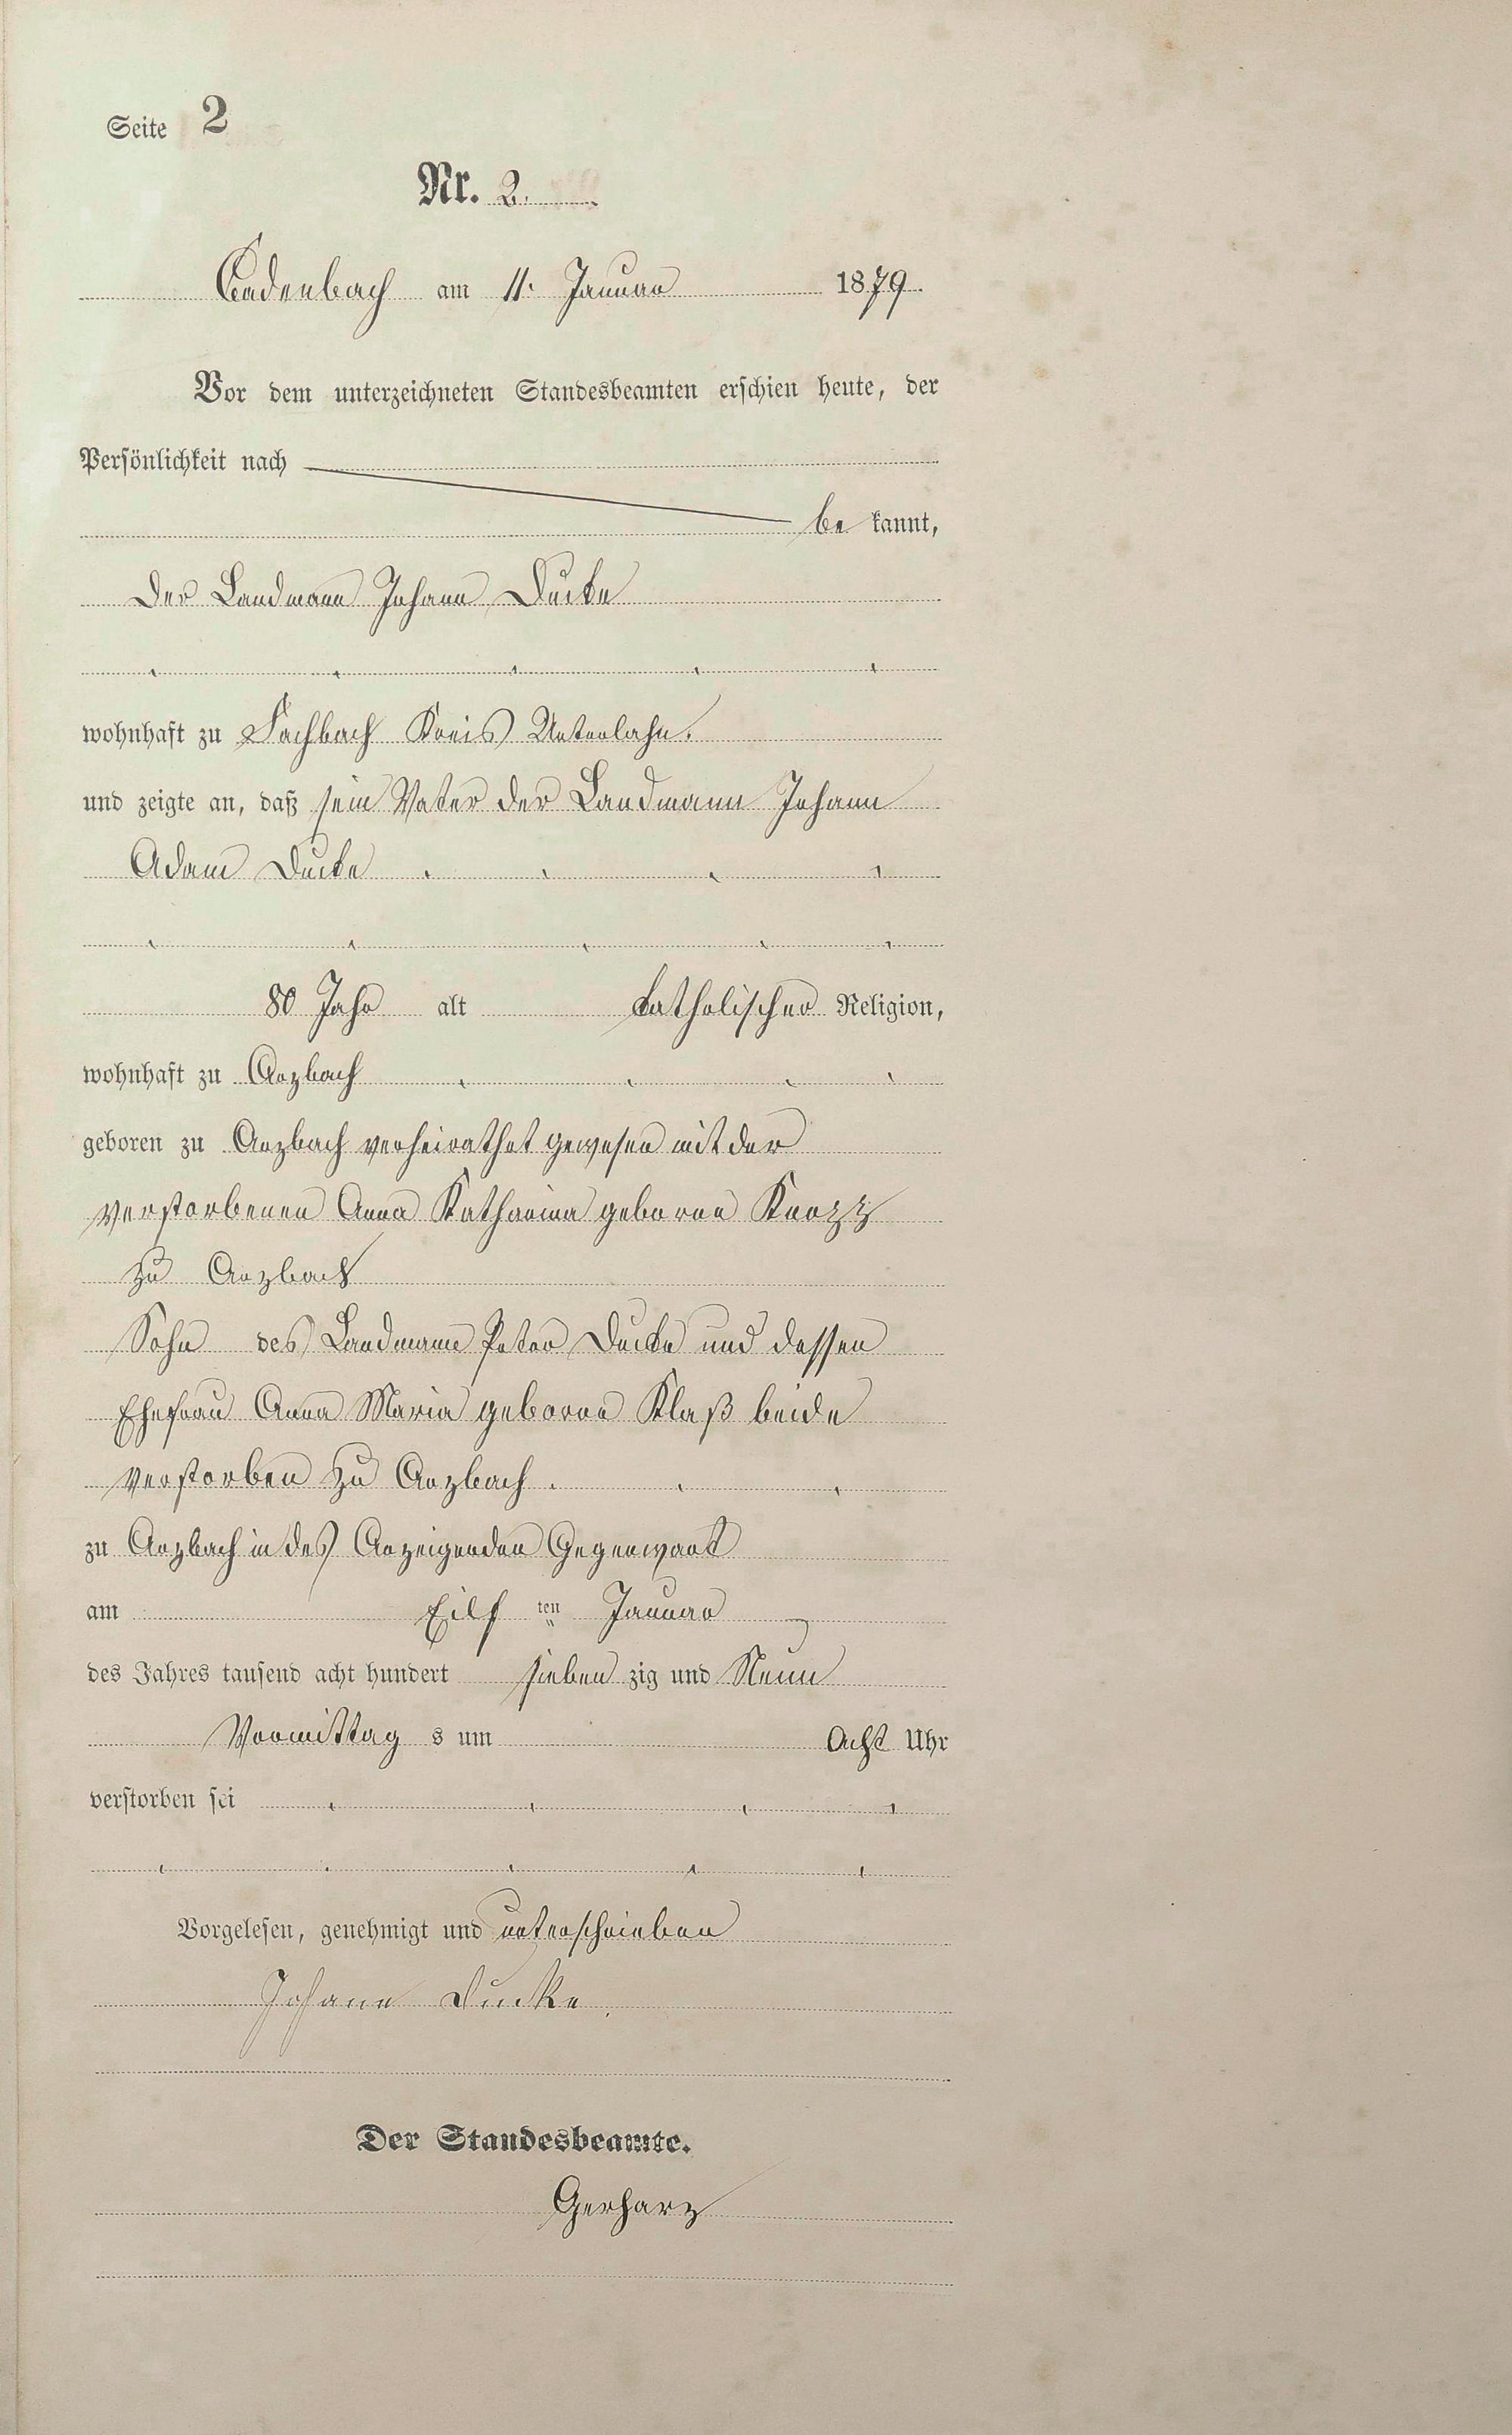 Seite 2
Nr. 2.
Cadenbach am 11. Januar 1879.
Vor dem unterzeichneten Standesbeamten erschien heute, der
Persönlichkeit nach
be kannt,
der Landmann Johann Ducke
wohnhaft zu Fachbach Kreis Unterlahn.
und zeigte an, daß sein Vater der Landmann Johann
Adam Ducke
80 Jahr alt katholischer Religion,
wohnhaft zu Arzbach
geboren zu Arzbach verheirathet gewesen mit der
verstorbenen Anna Katharina geborne
zu Arzbach
Sohn des Landmann Peter Ducke und dessen
Ehefrau Anna Maria geborne Klaß beide
verstorben zu Arzbach.
zu Arzbach in des Anzeigenden Gegenwart
am Eilf ten Januar
des Jahres tausend acht hundert sieben zig und Neun
Vormittag s um Acht Uhr
verstorben sei
Vorgelesen, genehmigt und unterschrieben
Johann Ducke.
Der Standesbeamte.
Gerharz